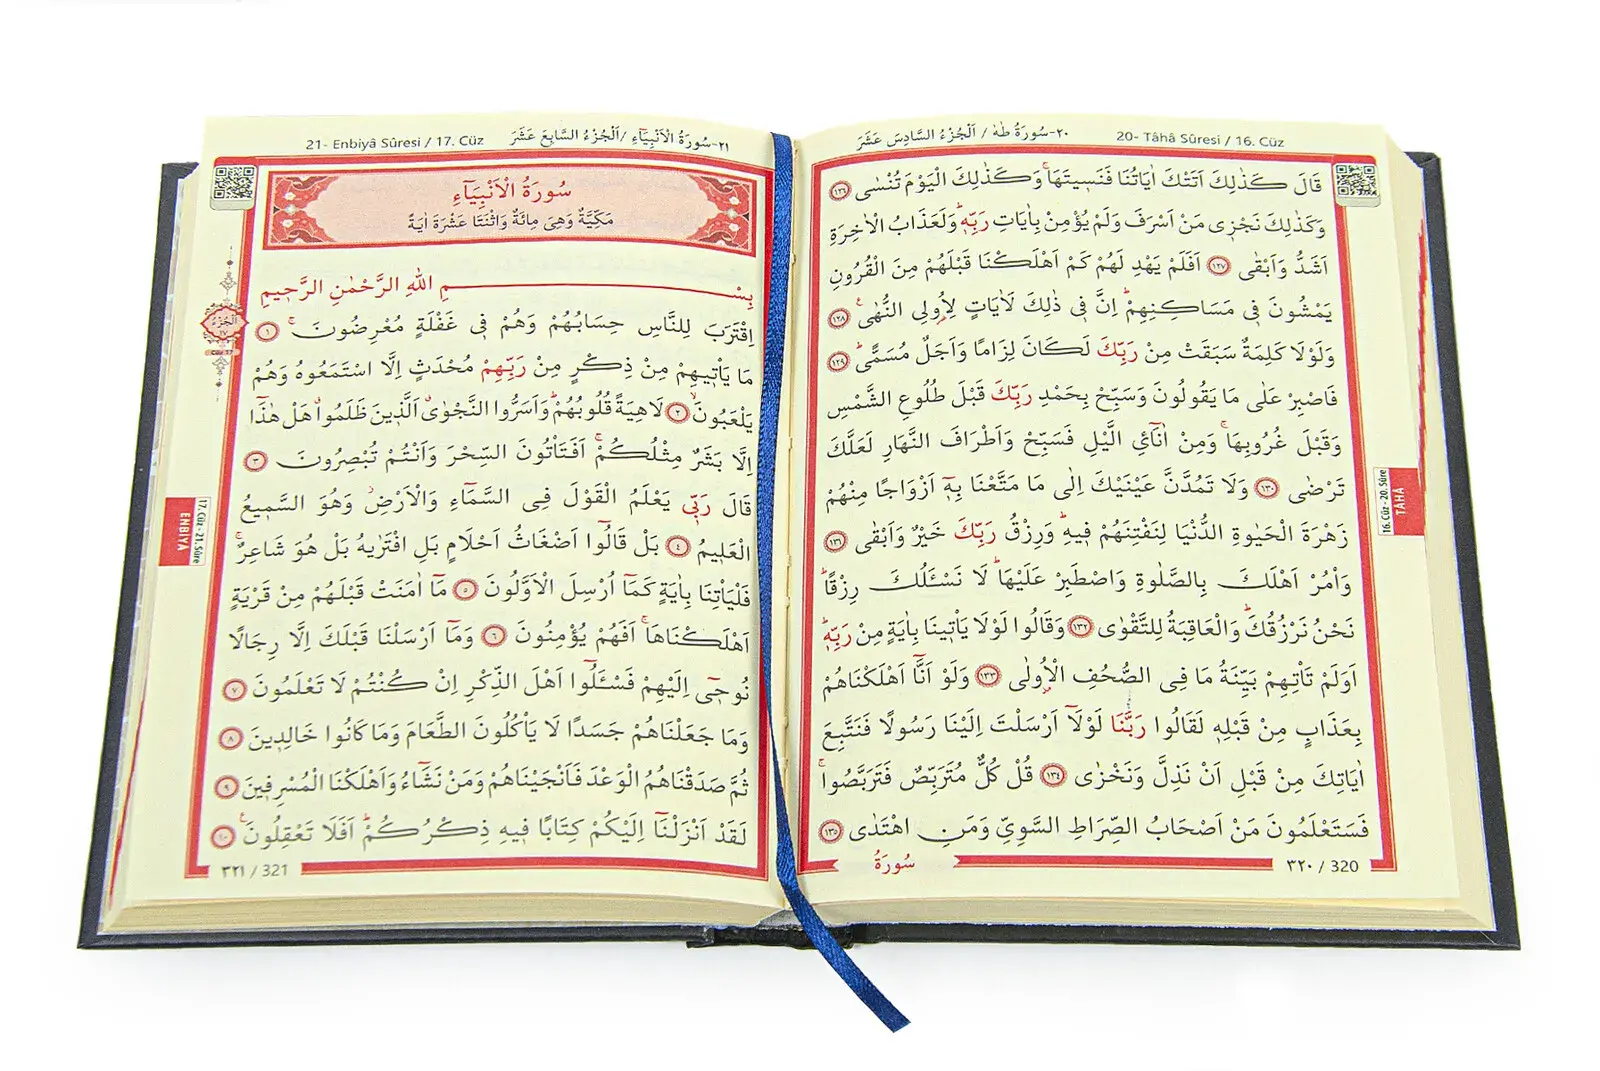 20- Tâhâ Sûresi / 16. Cüz
٢٠-سُورَةُ طٰهٰ / اَلْجُزْءُ السَّادِسَ عَشَرَ
قَالَ كَذٰلِكَ اَتَتْكَ اٰيَاتُنَا فَنَسٖيتَهَاۚ وَكَذٰلِكَ الْيَوْمَ تُنْسٰى ١٢٦
وَكَذٰلِكَ نَجْزٖى مَنْ اَسْرَفَ وَلَمْ يُؤْمِنْ بِاٰيَاتِ رَبِّهٖؕ وَلَعَذَابُ الْاٰخِرَةِ
اَشَدُّ وَاَبْقٰى ١٢٧ اَفَلَمْ يَهْدِ لَهُمْ كَمْ اَهْلَكْنَا قَبْلَهُمْ مِنَ الْقُرُونِ
يَمْشُونَ فٖى مَسَاكِنِهِمْؕ اِنَّ فٖى ذٰلِكَ لَاٰيَاتٍ لِاُولِى النُّهٰىࣖ ١٢٨
وَلَوْلَا كَلِمَةٌ سَبَقَتْ مِنْ رَبِّكَ لَكَانَ لِزَامًا وَاَجَلٌ مُسَمًّىؕ ١٢٩
فَاصْبِرْ عَلٰى مَا يَقُولُونَ وَسَبِّحْ بِحَمْدِ رَبِّكَ قَبْلَ طُلُوعِ الشَّمْسِ
وَقَبْلَ غُرُوبِهَاۚ وَمِنْ اٰنَٓائِ الَّيْلِ فَسَبِّحْ وَاَطْرَافَ النَّهَارِ لَعَلَّكَ
تَرْضٰى ١٣٠ وَلَا تَمُدَّنَّ عَيْنَيْكَ اِلٰى مَا مَتَّعْنَا بِهٖٓ اَزْوَاجًا مِنْهُمْ
زَهْرَةَ الْحَيٰوةِ الدُّنْيَا لِنَفْتِنَهُمْ فٖيهِؕ وَرِزْقُ رَبِّكَ خَيْرٌ وَاَبْقٰى ١٣١
وَاْمُرْ اَهْلَكَ بِالصَّلٰوةِ وَاصْطَبِرْ عَلَيْهَاؕ لَا نَسْـَٔلُكَ رِزْقًاؕ
نَحْنُ نَرْزُقُكَؕ وَالْعَاقِبَةُ لِلتَّقْوٰى ١٣٢ وَقَالُوا لَوْلَا يَاْتٖينَا بِاٰيَةٍ مِنْ رَبِّهٖؕ
اَوَلَمْ تَاْتِهِمْ بَيِّنَةُ مَا فِى الصُّحُفِ الْاُولٰى ١٣٣ وَلَوْ اَنَّٓا اَهْلَكْنَاهُمْ
بِعَذَابٍ مِنْ قَبْلِهٖ لَقَالُوا رَبَّنَا لَوْلَٓا اَرْسَلْتَ اِلَيْنَا رَسُولًا فَنَتَّبِعَ
اٰيَاتِكَ مِنْ قَبْلِ اَنْ نَذِلَّ وَنَخْزٰى ١٣٤ قُلْ كُلٌّ مُتَرَبِّصٌ فَتَرَبَّصُواۚ
فَسَتَعْلَمُونَ مَنْ اَصْحَابُ الصِّرَاطِ السَّوِىِّ وَمَنِ اهْتَدٰى ١٣٥
٣٢٠ / 320
سُورَةُ
16. Cüz - 20. Sûre
TÂHÂ
٢١-سُورَةُ الْاَنْبِيَٓاءِ / اَلْجُزْءُ السَّابِعَ عَشَرَ
21- Enbiyâ Sûresi / 17. Cüz
سُورَةُ الْاَنْبِيَٓاءِ
مَكِّيَّةٌ وَهِىَ مِائَةٌ وَاثْنَتَا عَشْرَةَ اٰيَةً
بِسْمِ اللّٰهِ الرَّحْمٰنِ الرَّحٖيمِ
اِقْتَرَبَ لِلنَّاسِ حِسَابُهُمْ وَهُمْ فٖى غَفْلَةٍ مُعْرِضُونَۚ ١
مَا يَاْتٖيهِمْ مِنْ ذِكْرٍ مِنْ رَبِّهِمْ مُحْدَثٍ اِلَّا اسْتَمَعُوهُ وَهُمْ
يَلْعَبُونَۙ ٢ لَاهِيَةً قُلُوبُهُمْؕ وَاَسَرُّوا النَّجْوٰىۗ الَّذٖينَ ظَلَمُواۗ هَلْ هٰذَٓا
اِلَّا بَشَرٌ مِثْلُكُمْۚ اَفَتَاْتُونَ السِّحْرَ وَاَنْتُمْ تُبْصِرُونَ ٣
قَالَ رَبّٖى يَعْلَمُ الْقَوْلَ فِى السَّمَٓاءِ وَالْاَرْضِؗ وَهُوَ السَّمٖيعُ
الْعَلٖيمُ ٤ بَلْ قَالُٓوا اَضْغَاثُ اَحْلَامٍ بَلِ افْتَرٰيهُ بَلْ هُوَ شَاعِرٌۚ
فَلْيَاْتِنَا بِاٰيَةٍ كَمَٓا اُرْسِلَ الْاَوَّلُونَ ٥ مَٓا اٰمَنَتْ قَبْلَهُمْ مِنْ قَرْيَةٍ
اَهْلَكْنَاهَاۚ اَفَهُمْ يُؤْمِنُونَ ٦ وَمَٓا اَرْسَلْنَا قَبْلَكَ اِلَّا رِجَالًا
نُوحٖٓى اِلَيْهِمْ فَسْـَٔلُٓوا اَهْلَ الذِّكْرِ اِنْ كُنْتُمْ لَا تَعْلَمُونَ ٧
وَمَا جَعَلْنَاهُمْ جَسَدًا لَا يَاْكُلُونَ الطَّعَامَ وَمَا كَانُوا خَالِدٖينَ ٨
ثُمَّ صَدَقْنَاهُمُ الْوَعْدَ فَاَنْجَيْنَاهُمْ وَمَنْ نَشَٓاءُ وَاَهْلَكْنَا الْمُسْرِفٖينَ ٩
لَقَدْ اَنْزَلْنَٓا اِلَيْكُمْ كِتَابًا فٖيهِ ذِكْرُكُمْؕ اَفَلَا تَعْقِلُونَࣖ ١٠
٣٢١ / 321
اَلْجُزْءُ
١٧
Cüz 17
17. Cüz - 21. Sûre
ENBİYA